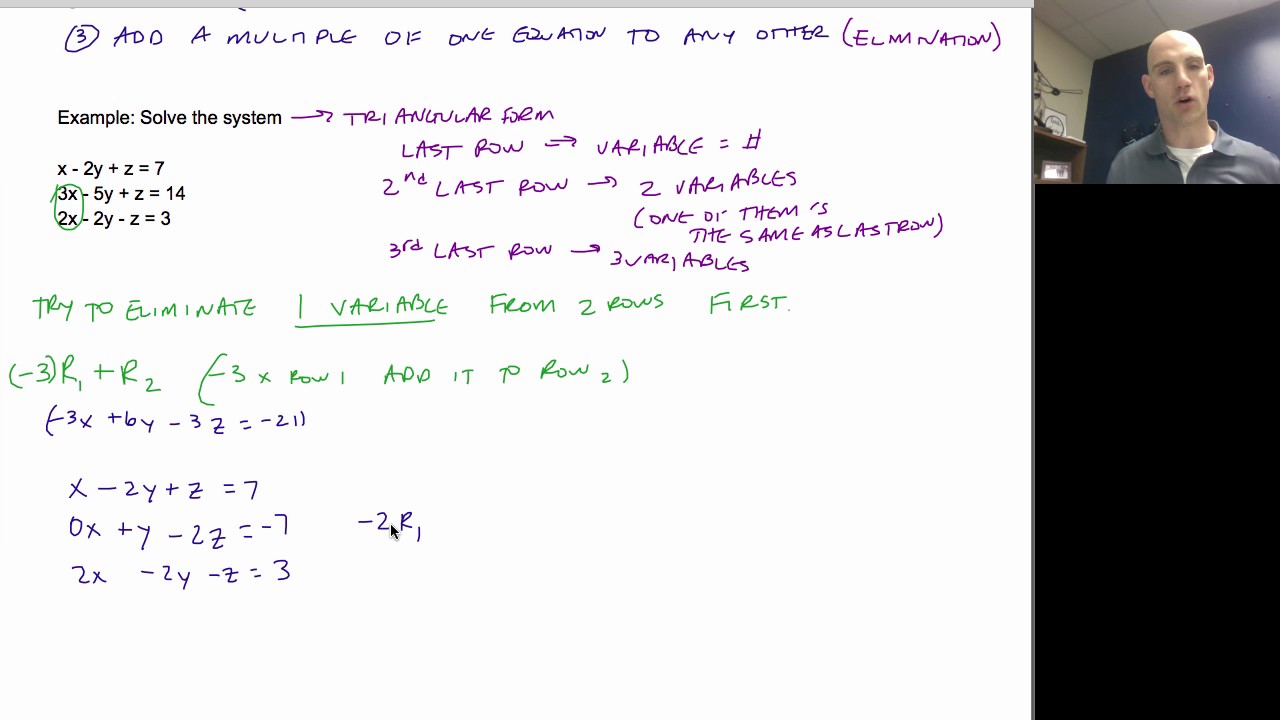 ③ ADD A MULTIPLE OF ONE EQUATION TO ANY OTHER (ELIMINATION)
Example: Solve the system → TRIANGULAR FORM
LAST ROW → VARIABLE = #
x - 2y + z = 7
2nd LAST ROW → 2 VARIABLES
3x - 5y + z = 14
(ONE OF THEM IS
2x - 2y - z = 3
THE SAME AS LAST ROW)
3rd LAST ROW → 3 VARIABLES
TRY TO ELIMINATE 1 VARIABLE FROM 2 ROWS FIRST.
(-3)R₁ + R₂ (-3 x ROW 1 ADD IT TO ROW 2)
(-3x + 6y - 3z = -21)
x - 2y + z = 7
0x + y - 2z = -7 -2R₁
2x - 2y - z = 3